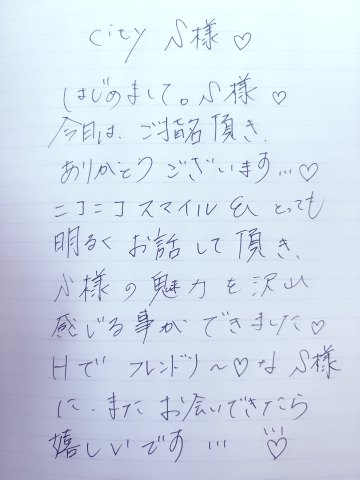 city S様♡
はじめまして。S様♡
今日は、ご指名頂き、
ありがとうございます…♡
ニコニコスマイル&とっても
明るくお話して頂き、
S様の魅力を沢山
感じる事ができました♡
Hでフレンドリ〜♡なS様
に、またお会いできたら
嬉しいです…♡